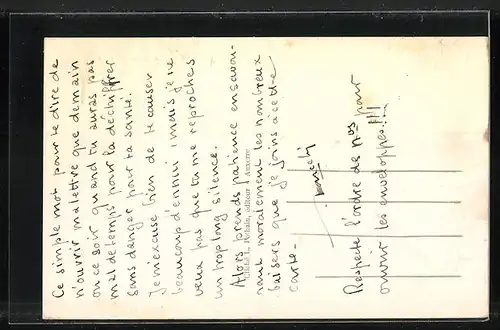 Ce simple mot pour te dire de
n'ouvrir ma lettre que demain
ou ce soir quand tu auras pas
mal de temps pour la déchiffrer
sans danger pour ta santé.
Je m'excuse bien de te causer
beaucoup d'ennui, mais je ne
veux pas que tu me reproches
un trop long silence.
Alors prends patience en savou-
rant moralement les nombreux
baisers que je joins à cette
carte-
Cliché L. éditeur Auxerre
Respecte l'ordre des nos pour
ouvrir les enveloppes!!!!